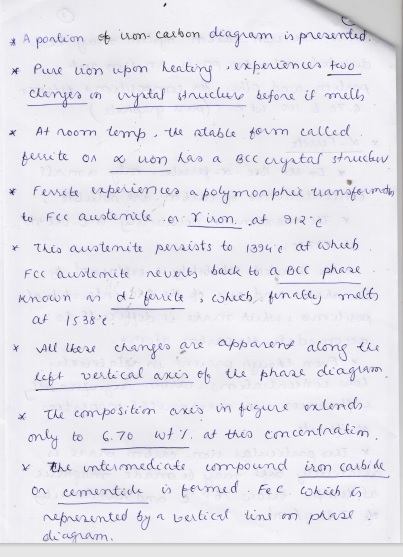 * A portion of iron-carbon diagram is presented.
* Pure iron upon heating, experiences two
changes in crystal structure before it melts
* At room temp, the stable form called
ferrite or α iron has a BCC crystal structure
* Ferrite experiences a polymorphic transformation
to FCC austenite or γ iron at 912°c
* This austenite persists to 1394°c at which
FCC austenite reverts back to a BCC phase
known as d- ferrite, which finally melts
at 1538°c.
* All these changes are apparent along the
left vertical axis of the phase diagram.
* The composition axis in figure extends
only to 6.70 wt %. at this concentration.
* The intermediate compound iron carbide
or cementide is formed. FeC which is
represented by a vertical line on phase
diagram.